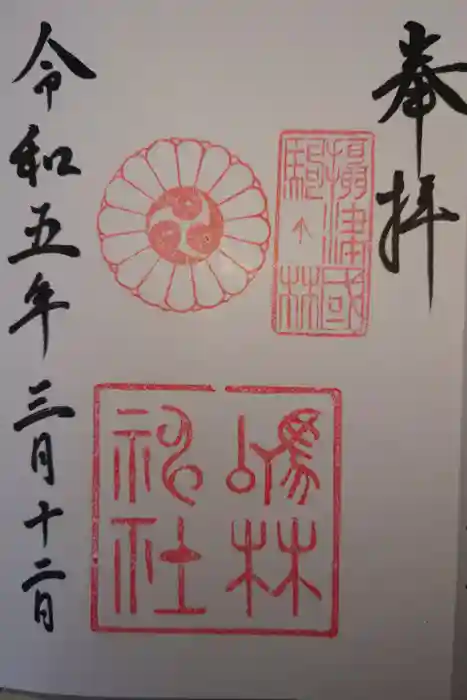 奉拝
攝津國
駒ヶ林
駒林
神社
令和五年三月十二日